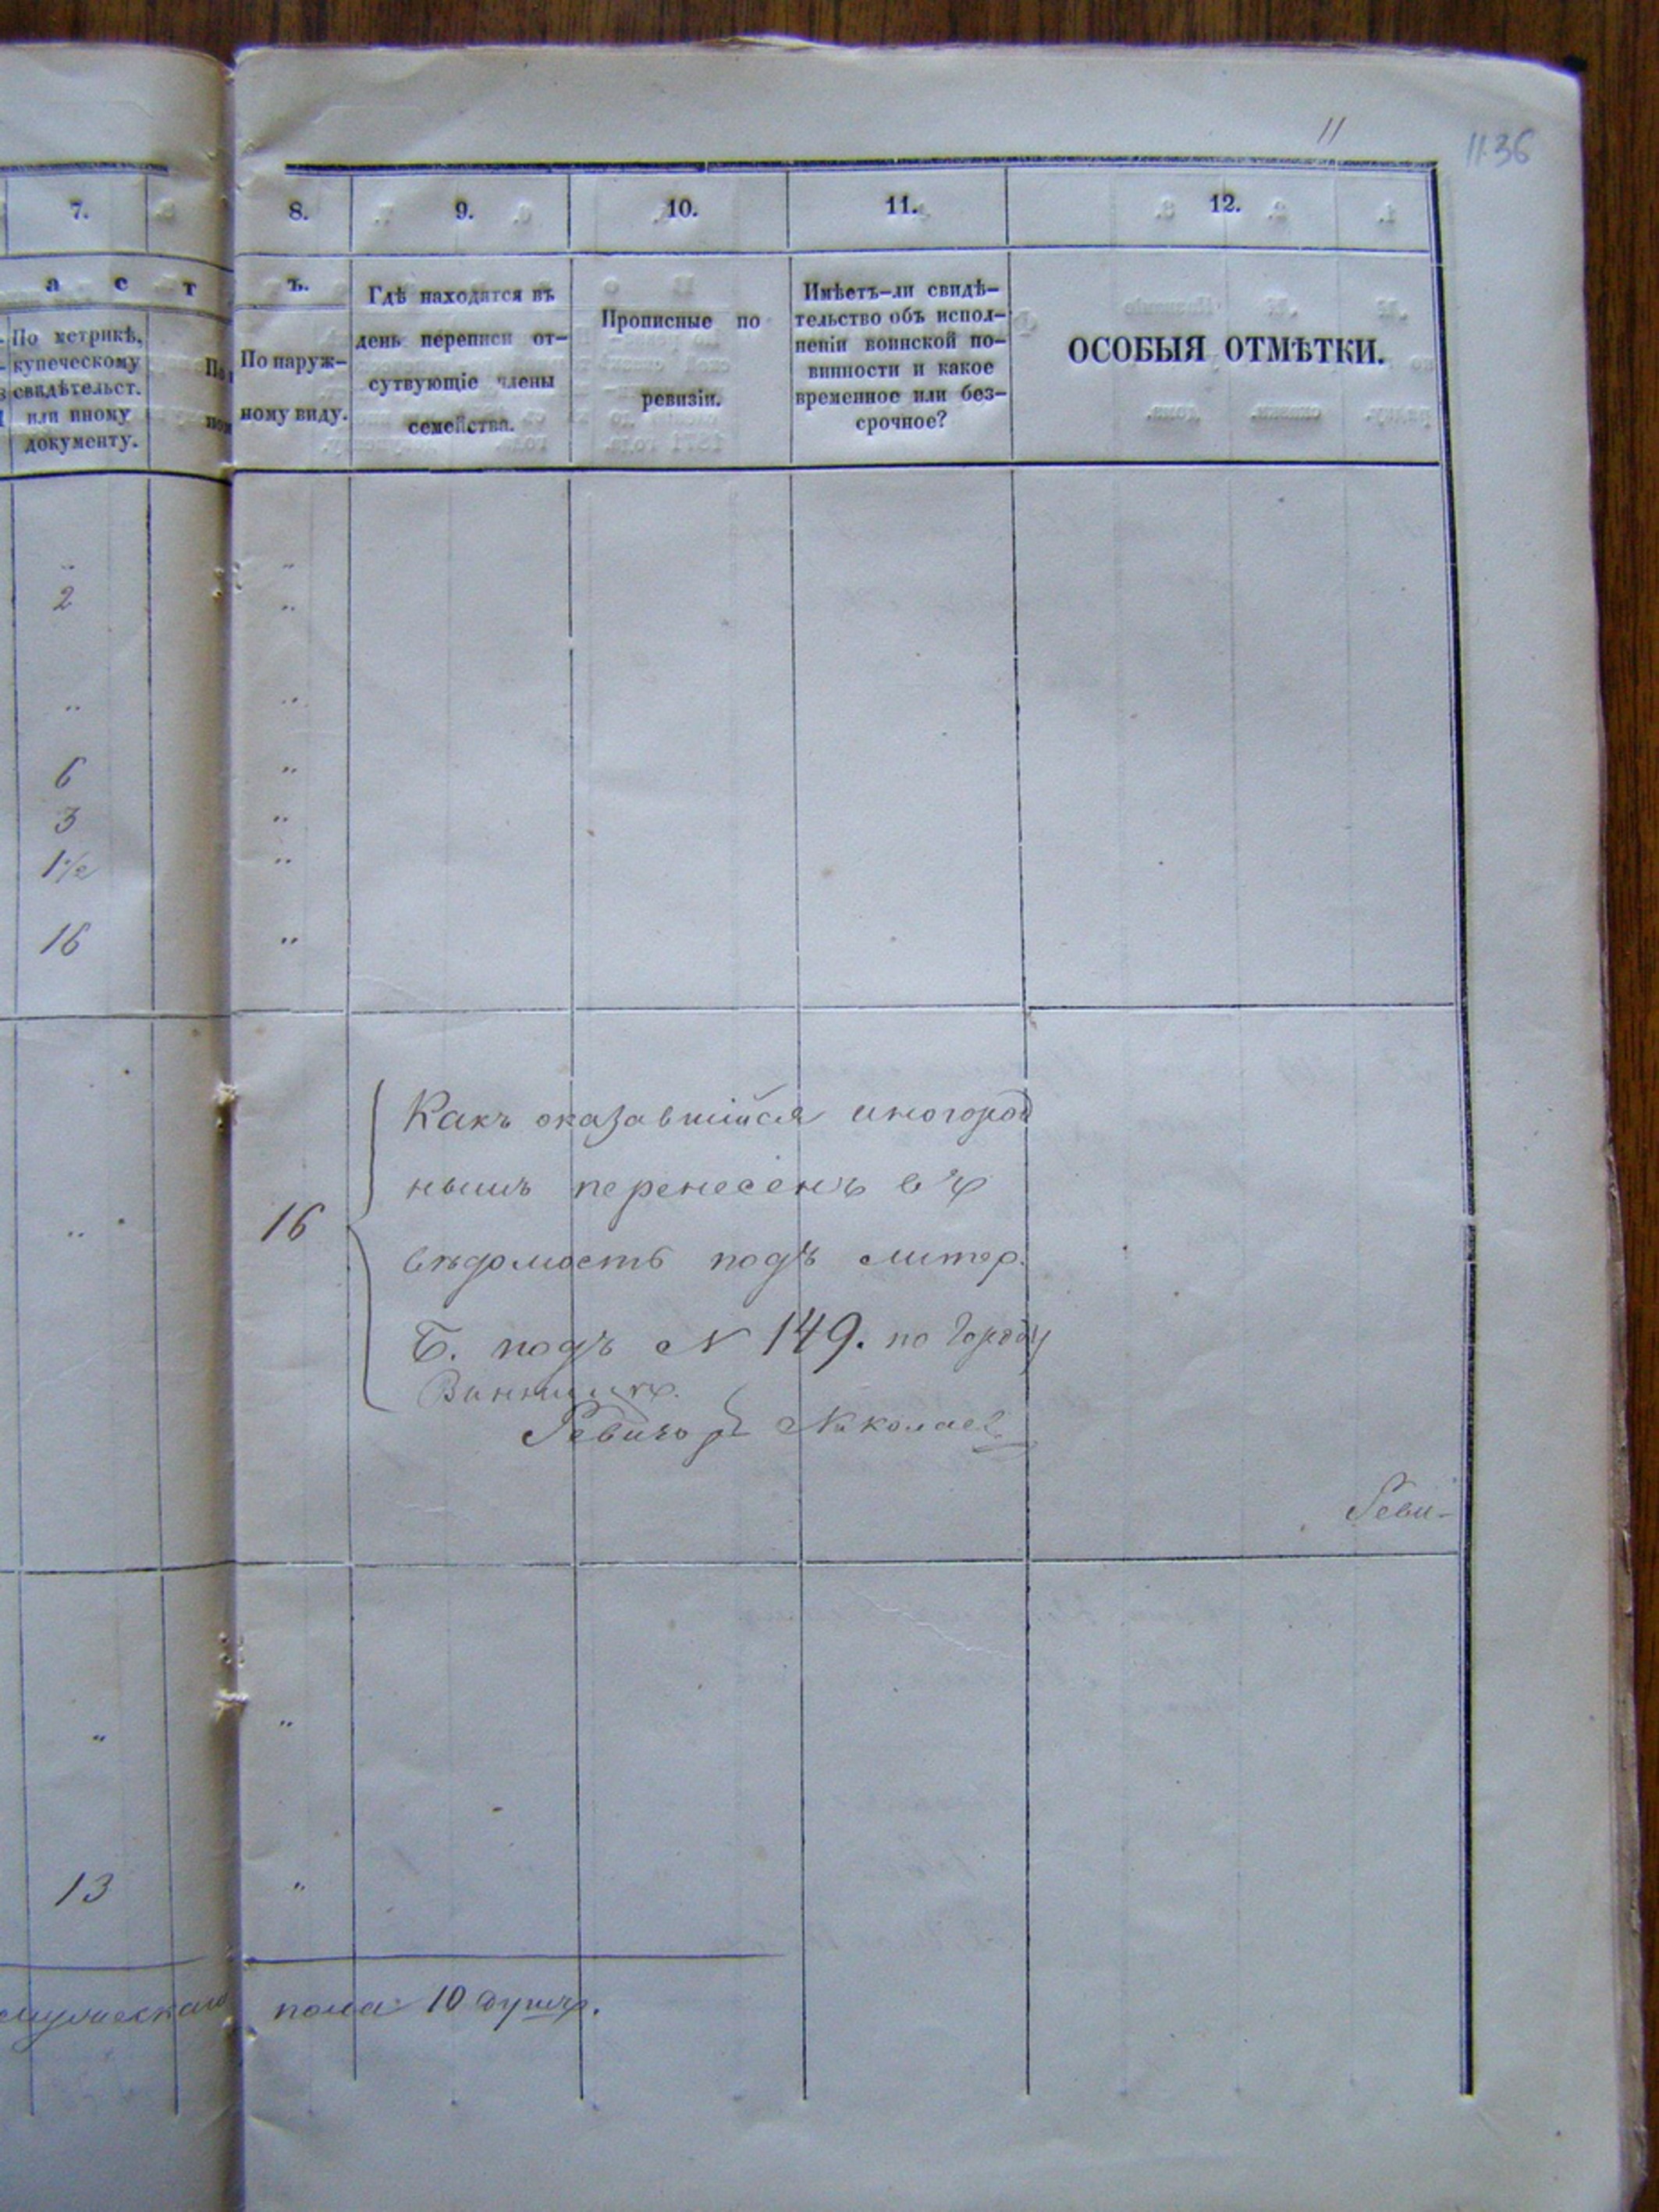 11
1136
7.
8.
9.
10.
11.
12.
а с т
ъ.
По метрикѣ,
купеческому
свидѣтельст.
или иному
документу.
По наруж-
ному виду.
Гдѣ находятся въ
день переписи от-
сутвующіе члены
семейства.
Прописные по
ревизіи.
Имѣетъ-ли свидѣ-
тельство объ испол-
неніи воинской по-
винности и какое
временное или без-
срочное?
ОСОБЫЯ ОТМѢТКИ.
„ „
2 „
„ „
6 „
3 „
1½ „
16 „
Какъ оказавшійся иногород
нымъ перенесенъ въ
„ 16
вѣдомость подъ литер.
Б. подъ N 149. по городу
Винницѣ.
Ревизоръ Николаев
Реви-
„ „
13 „
мужескаго пола 10 душъ.